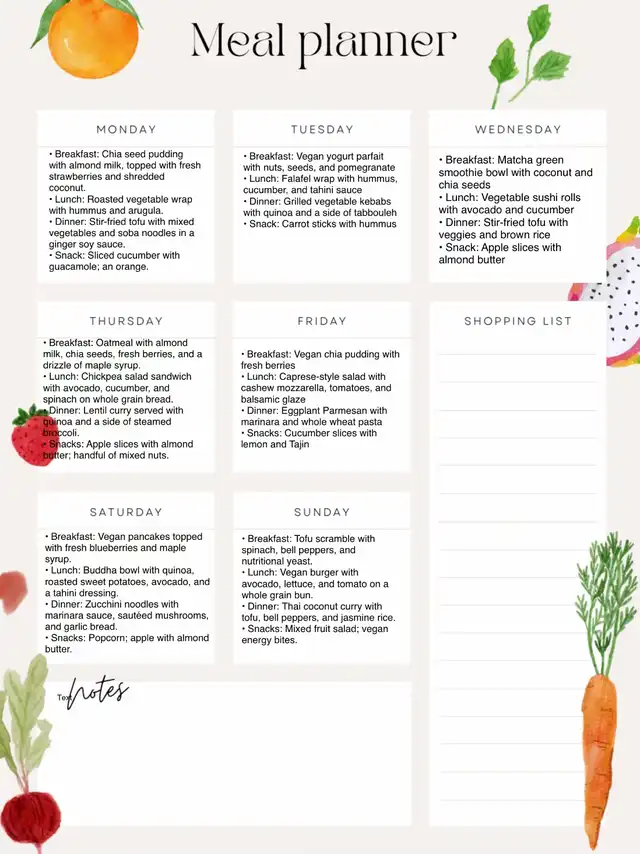 Meal planner
MONDAY
• Breakfast: Chia seed pudding
with almond milk, topped with fresh
strawberries and shredded
coconut.
• Lunch: Roasted vegetable wrap
with hummus and arugula.
• Dinner: Stir-fried tofu with mixed
vegetables and soba noodles in a
ginger soy sauce.
• Snack: Sliced cucumber with
guacamole; an orange.
TUESDAY
• Breakfast: Vegan yogurt parfait
with nuts, seeds, and pomegranate
• Lunch: Falafel wrap with hummus,
cucumber, and tahini sauce
• Dinner: Grilled vegetable kebabs
with quinoa and a side of tabbouleh
• Snack: Carrot sticks with hummus
WEDNESDAY
• Breakfast: Matcha green
smoothie bowl with coconut and
chia seeds
• Lunch: Vegetable sushi rolls
with avocado and cucumber
• Dinner: Stir-fried tofu with
veggies and brown rice
• Snack: Apple slices with
almond butter
THURSDAY
• Breakfast: Oatmeal with almond
milk, chia seeds, fresh berries, and a
drizzle of maple syrup.
• Lunch: Chickpea salad sandwich
with avocado, cucumber, and
spinach on whole grain bread.
• Dinner: Lentil curry served with
quinoa and a side of steamed
broccoli.
• Snacks: Apple slices with almond
butter; handful of mixed nuts.
FRIDAY
• Breakfast: Vegan chia pudding with
fresh berries
• Lunch: Caprese-style salad with
cashew mozzarella, tomatoes, and
balsamic glaze
• Dinner: Eggplant Parmesan with
marinara and whole wheat pasta
• Snacks: Cucumber slices with
lemon and Tajin
SHOPPING LIST
SATURDAY
• Breakfast: Vegan pancakes topped
with fresh blueberries and maple
syrup.
• Lunch: Buddha bowl with quinoa,
roasted sweet potatoes, avocado, and
a tahini dressing.
• Dinner: Zucchini noodles with
marinara sauce, sautéed mushrooms,
and garlic bread.
• Snacks: Popcorn; apple with almond
butter.
SUNDAY
• Breakfast: Tofu scramble with
spinach, bell peppers, and
nutritional yeast.
• Lunch: Vegan burger with
avocado, lettuce, and tomato on a
whole grain bun.
• Dinner: Thai coconut curry with
tofu, bell peppers, and jasmine rice.
• Snacks: Mixed fruit salad; vegan
energy bites.
Text
notes